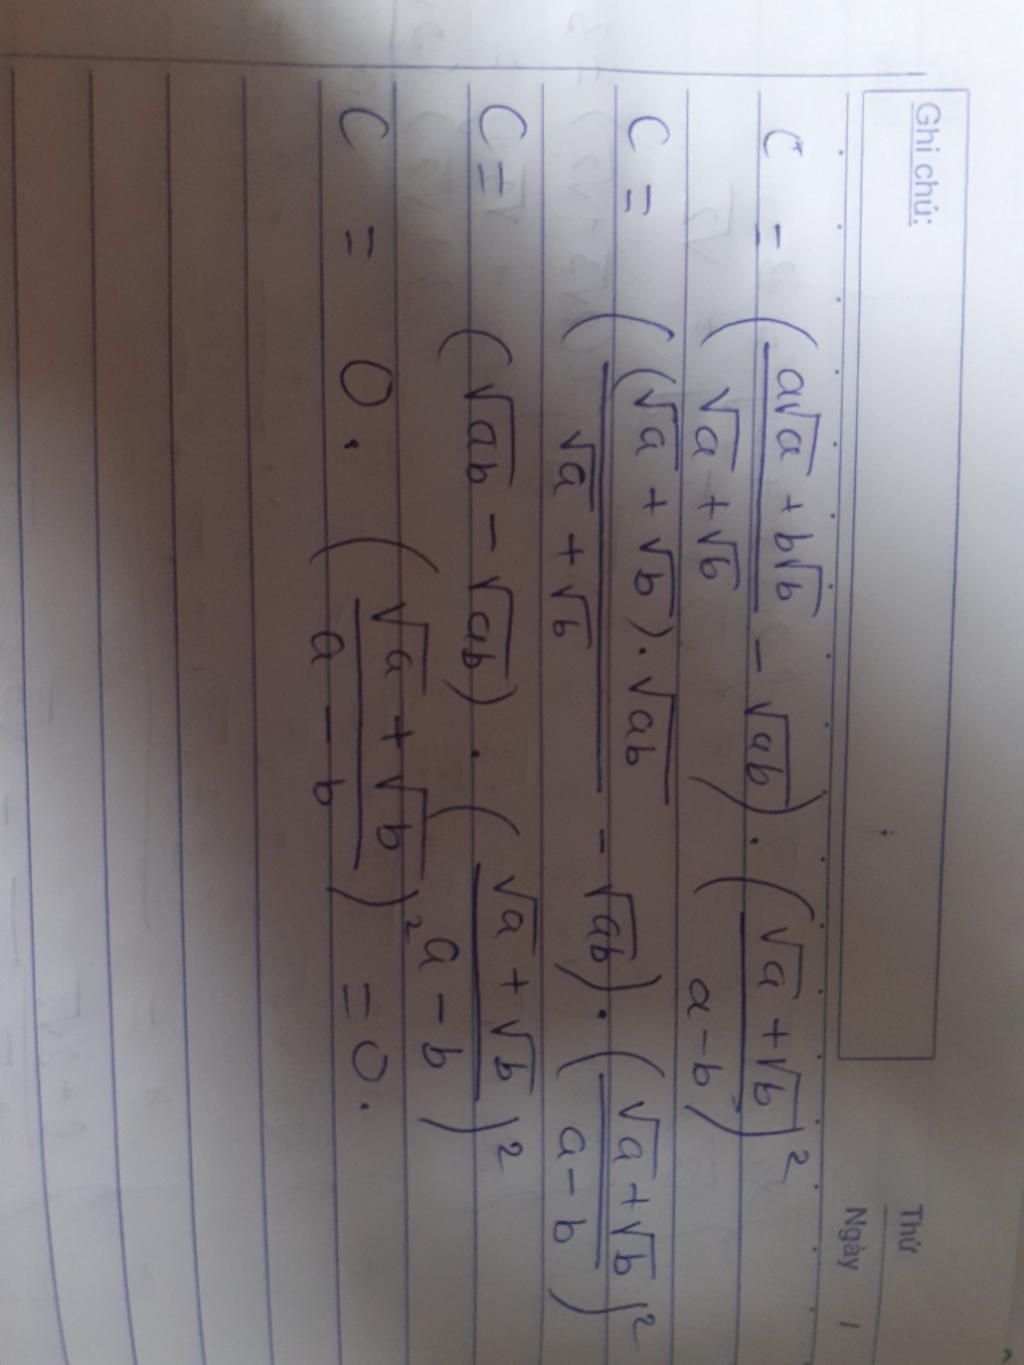 Ghi chú:
Thứ
Ngày /
C = (a√a + b√b / √a + √b - √ab) . (√a + √b / a - b)²
C = ((√a + √b) . √ab / √a + √b - √ab) . (√a + √b / a - b)²
C = (√ab - √ab) . (√a + √b / a - b)²
C = 0 . (√a + √b / a - b)² = 0.